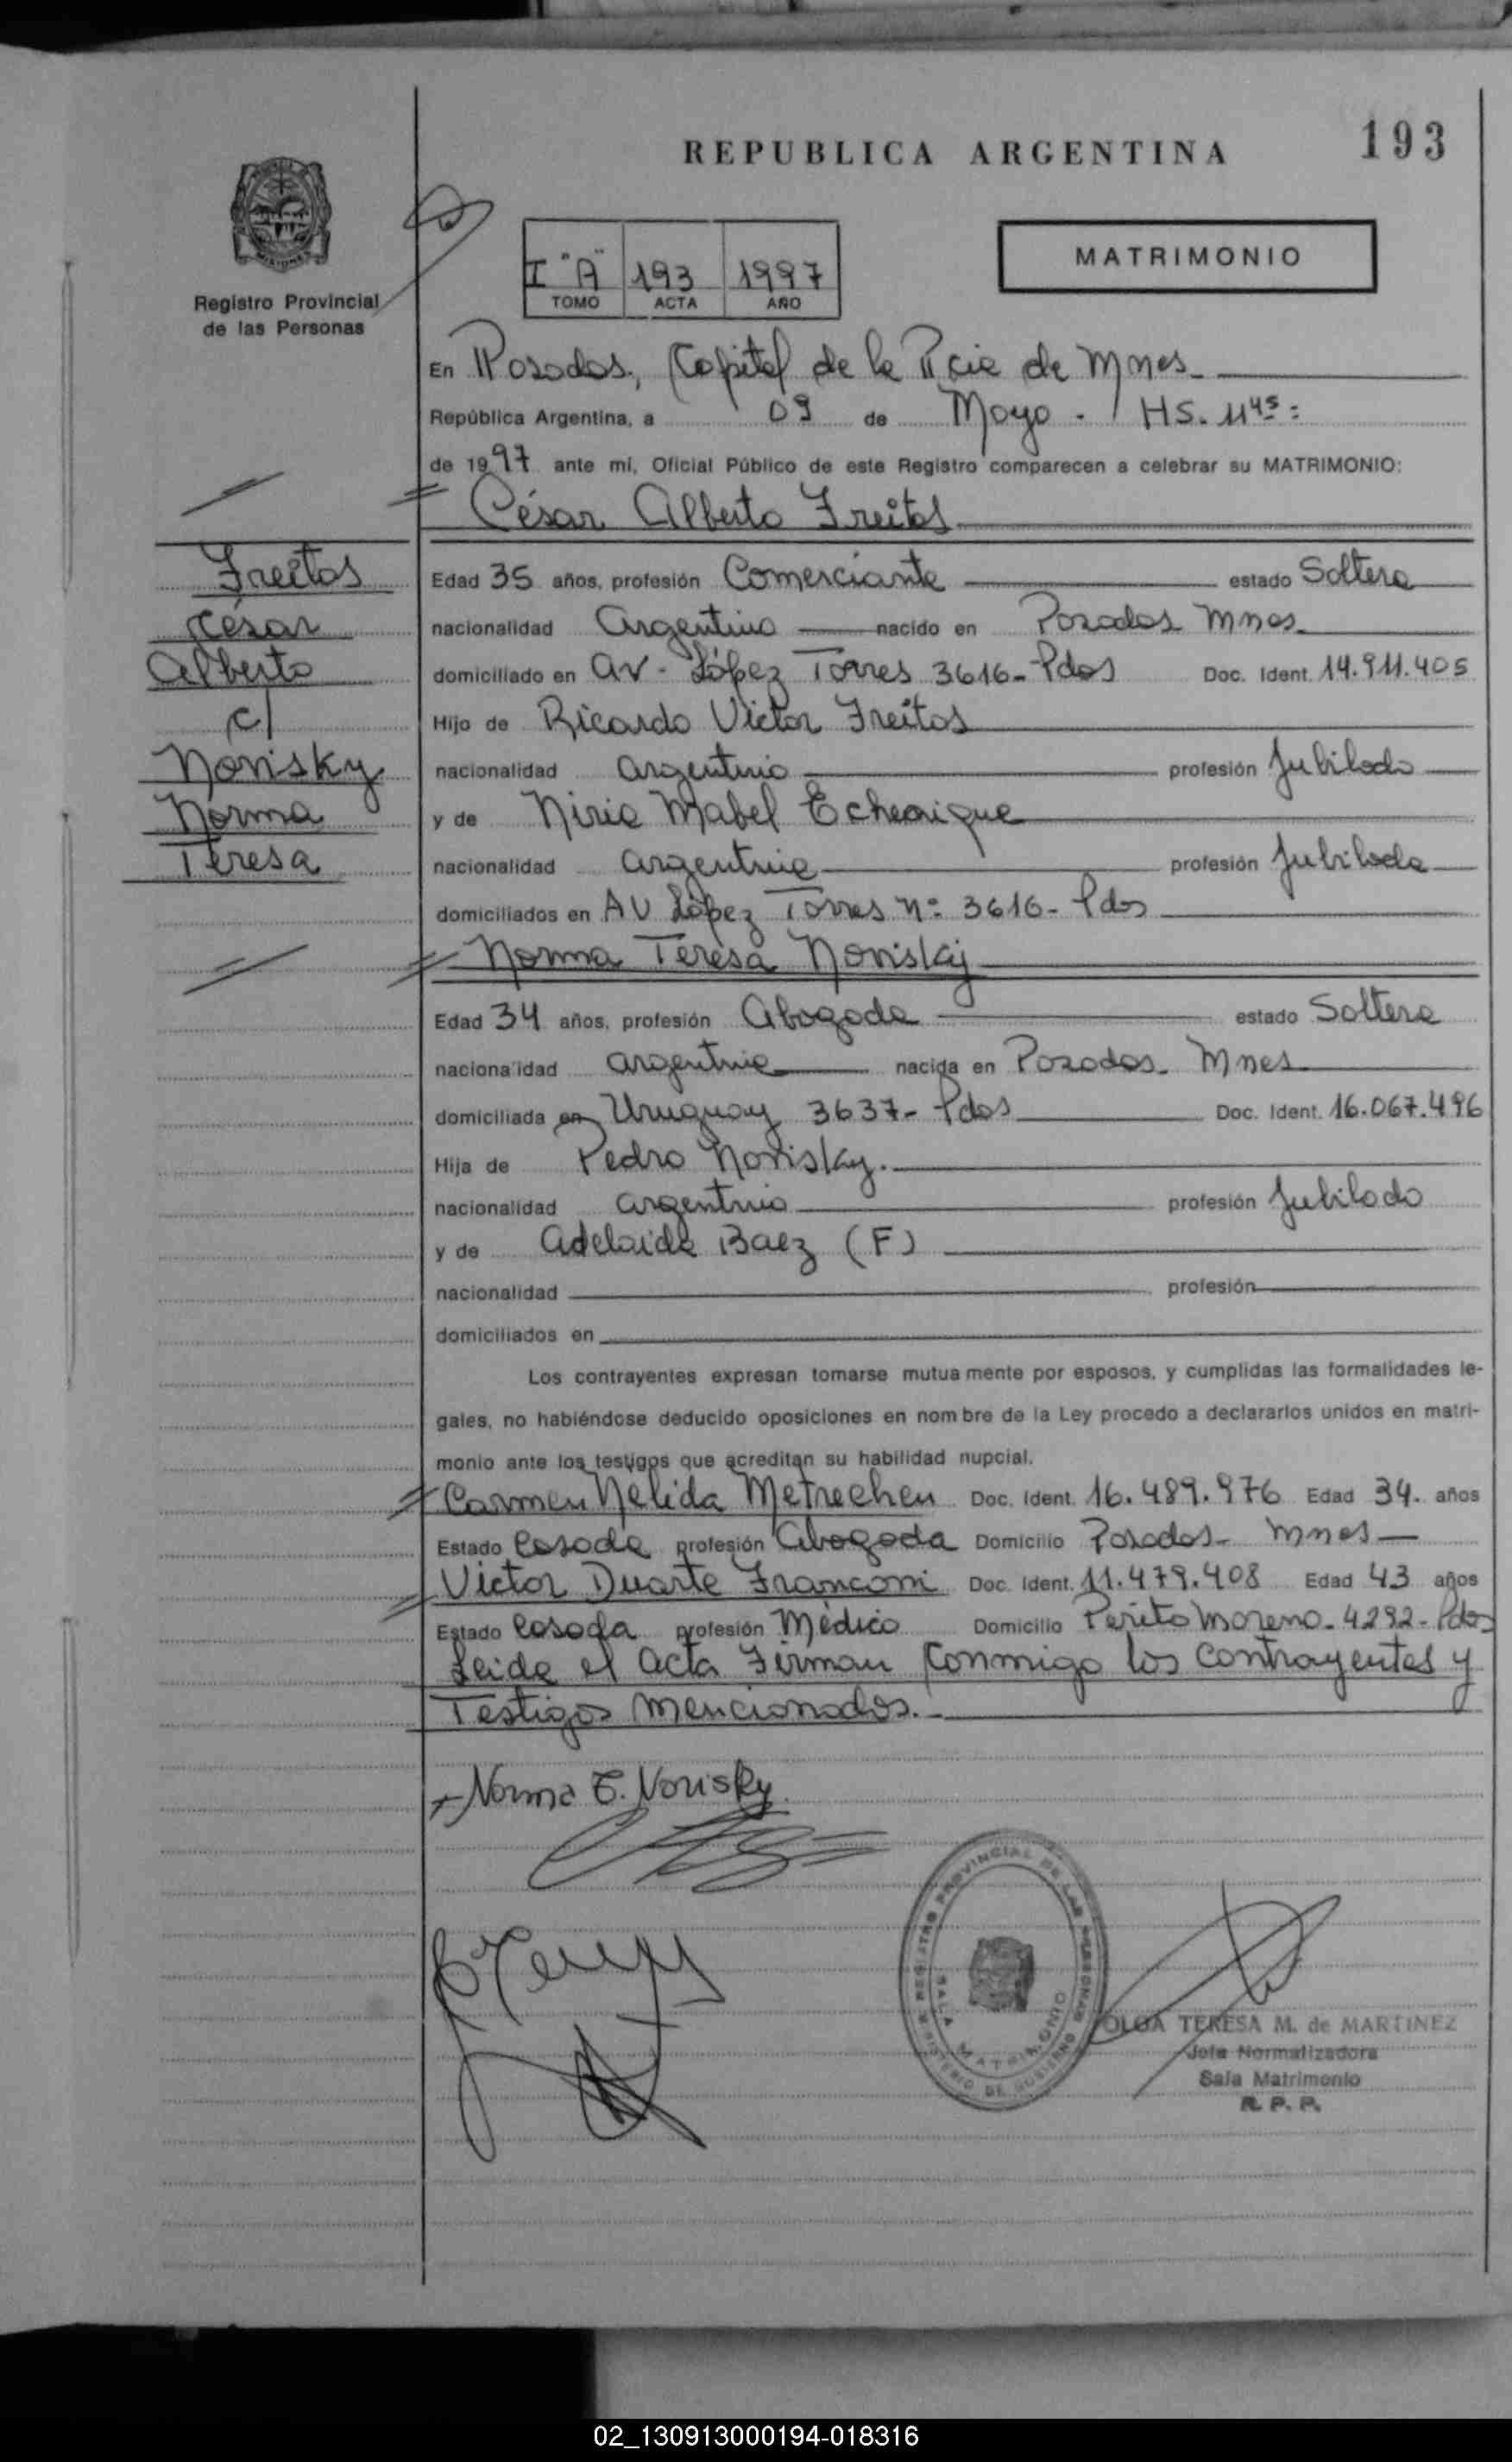 193
REPUBLICA ARGENTINA
MISIONES
Registro Provincial
de las Personas
I "A" 193 1997
TOMO ACTA AÑO
MATRIMONIO
En Posadas, Capital de la Pcia de Mnes
República Argentina, a 09 de Mayo - HS. 11⁴⁵:
de 1997 ante mi, Oficial Público de este Registro comparecen a celebrar su MATRIMONIO:
César Alberto Freitas
Freitas
César
Alberto
c/
Norisky
Norma
Teresa
Edad 35 años, profesión Comerciante estado Soltero
nacionalidad Argentino nacido en Posadas Mnes
domiciliado en Av. López Torres 3616- Pdas Doc. Ident. 14.911.405
Hijo de Ricardo Victor Freitas
nacionalidad argentino profesión Jubilado
y de Mabel
nacionalidad argentina profesión Jubilada
domiciliados en AV López Torres Nº 3616- Pdas
Norma Teresa Norisky
Edad 34 años, profesión Abogada estado Soltera
nacionalidad argentina nacida en Posadas - Mnes
domiciliada en Uruguay 3637- Pdas Doc. Ident. 16.067.496
Hija de Pedro Norisky.
nacionalidad argentino profesión Jubilado
y de Adelaida Baez (F)
nacionalidad profesión
domiciliados en
Los contrayentes expresan tomarse mutuamente por esposos, y cumplidas las formalidades le-
gales, no habiéndose deducido oposiciones en nombre de la Ley procedo a declararlos unidos en matri-
monio ante los testigos que acreditan su habilidad nupcial.
Carmen Nelida Metrechen Doc. Ident. 16.489.976 Edad 34. años
Estado Casada profesión Abogada Domicilio Posadas- Mnes
Victor Duarte Franconi Doc. Ident. 11.479.408 Edad 43 años
Estado Casado profesión Médico Domicilio Perito Moreno- 4292- Pdas
Leida el Acta Firman Conmigo los Contrayentes y
Testigos Mencionados.-
Norma T. Norisky
REGISTRO PROVINCIAL DE LAS PERSONAS
MINISTERIO DE GOBIERNO
SALA MATRIMONIO
OLGA TERESA M. de MARTINEZ
Jefa Normalizadora
Sala Matrimonio
R. P. P.
02_130913000194-018316